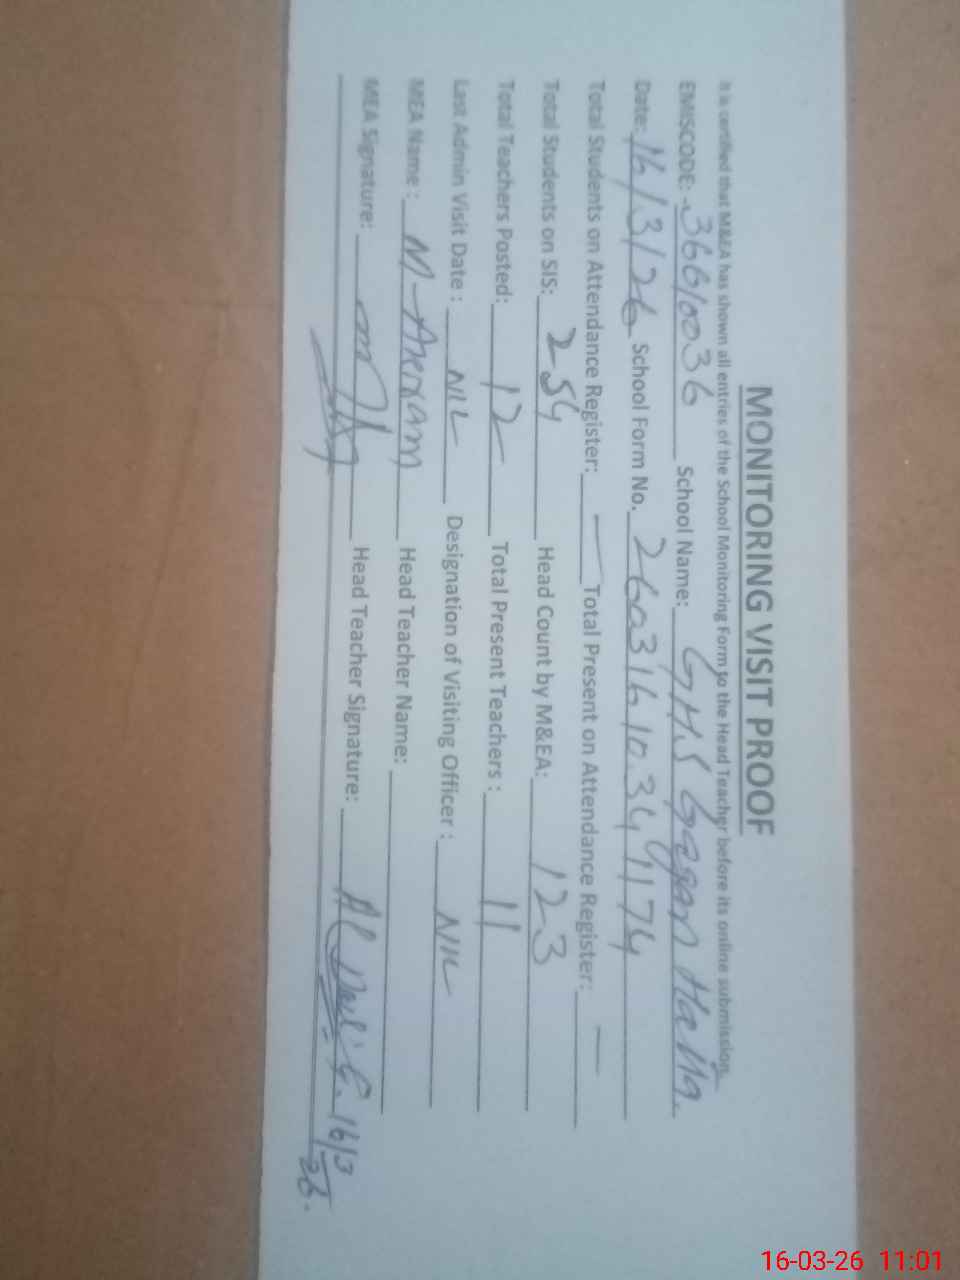 MONITORING VISIT PROOF
It is certified that M&EA has shown all entries of the School Monitoring Form to the Head Teacher before its online submission.
EMISCODE:- 36610036 School Name: GHS Gagan Hatta.
Date: 16/3/26 School Form No. 260316103491174
Total Students on Attendance Register: — Total Present on Attendance Register: —
Total Students on SIS: 254 Head Count by M&EA: 123
Total Teachers Posted: 12 Total Present Teachers : 11
Last Admin Visit Date : NIL Designation of Visiting Officer : NIL
MEA Name : M- Head Teacher Name:
MEA Signature: Head Teacher Signature: 16/3/26.
16-03-26 11:01